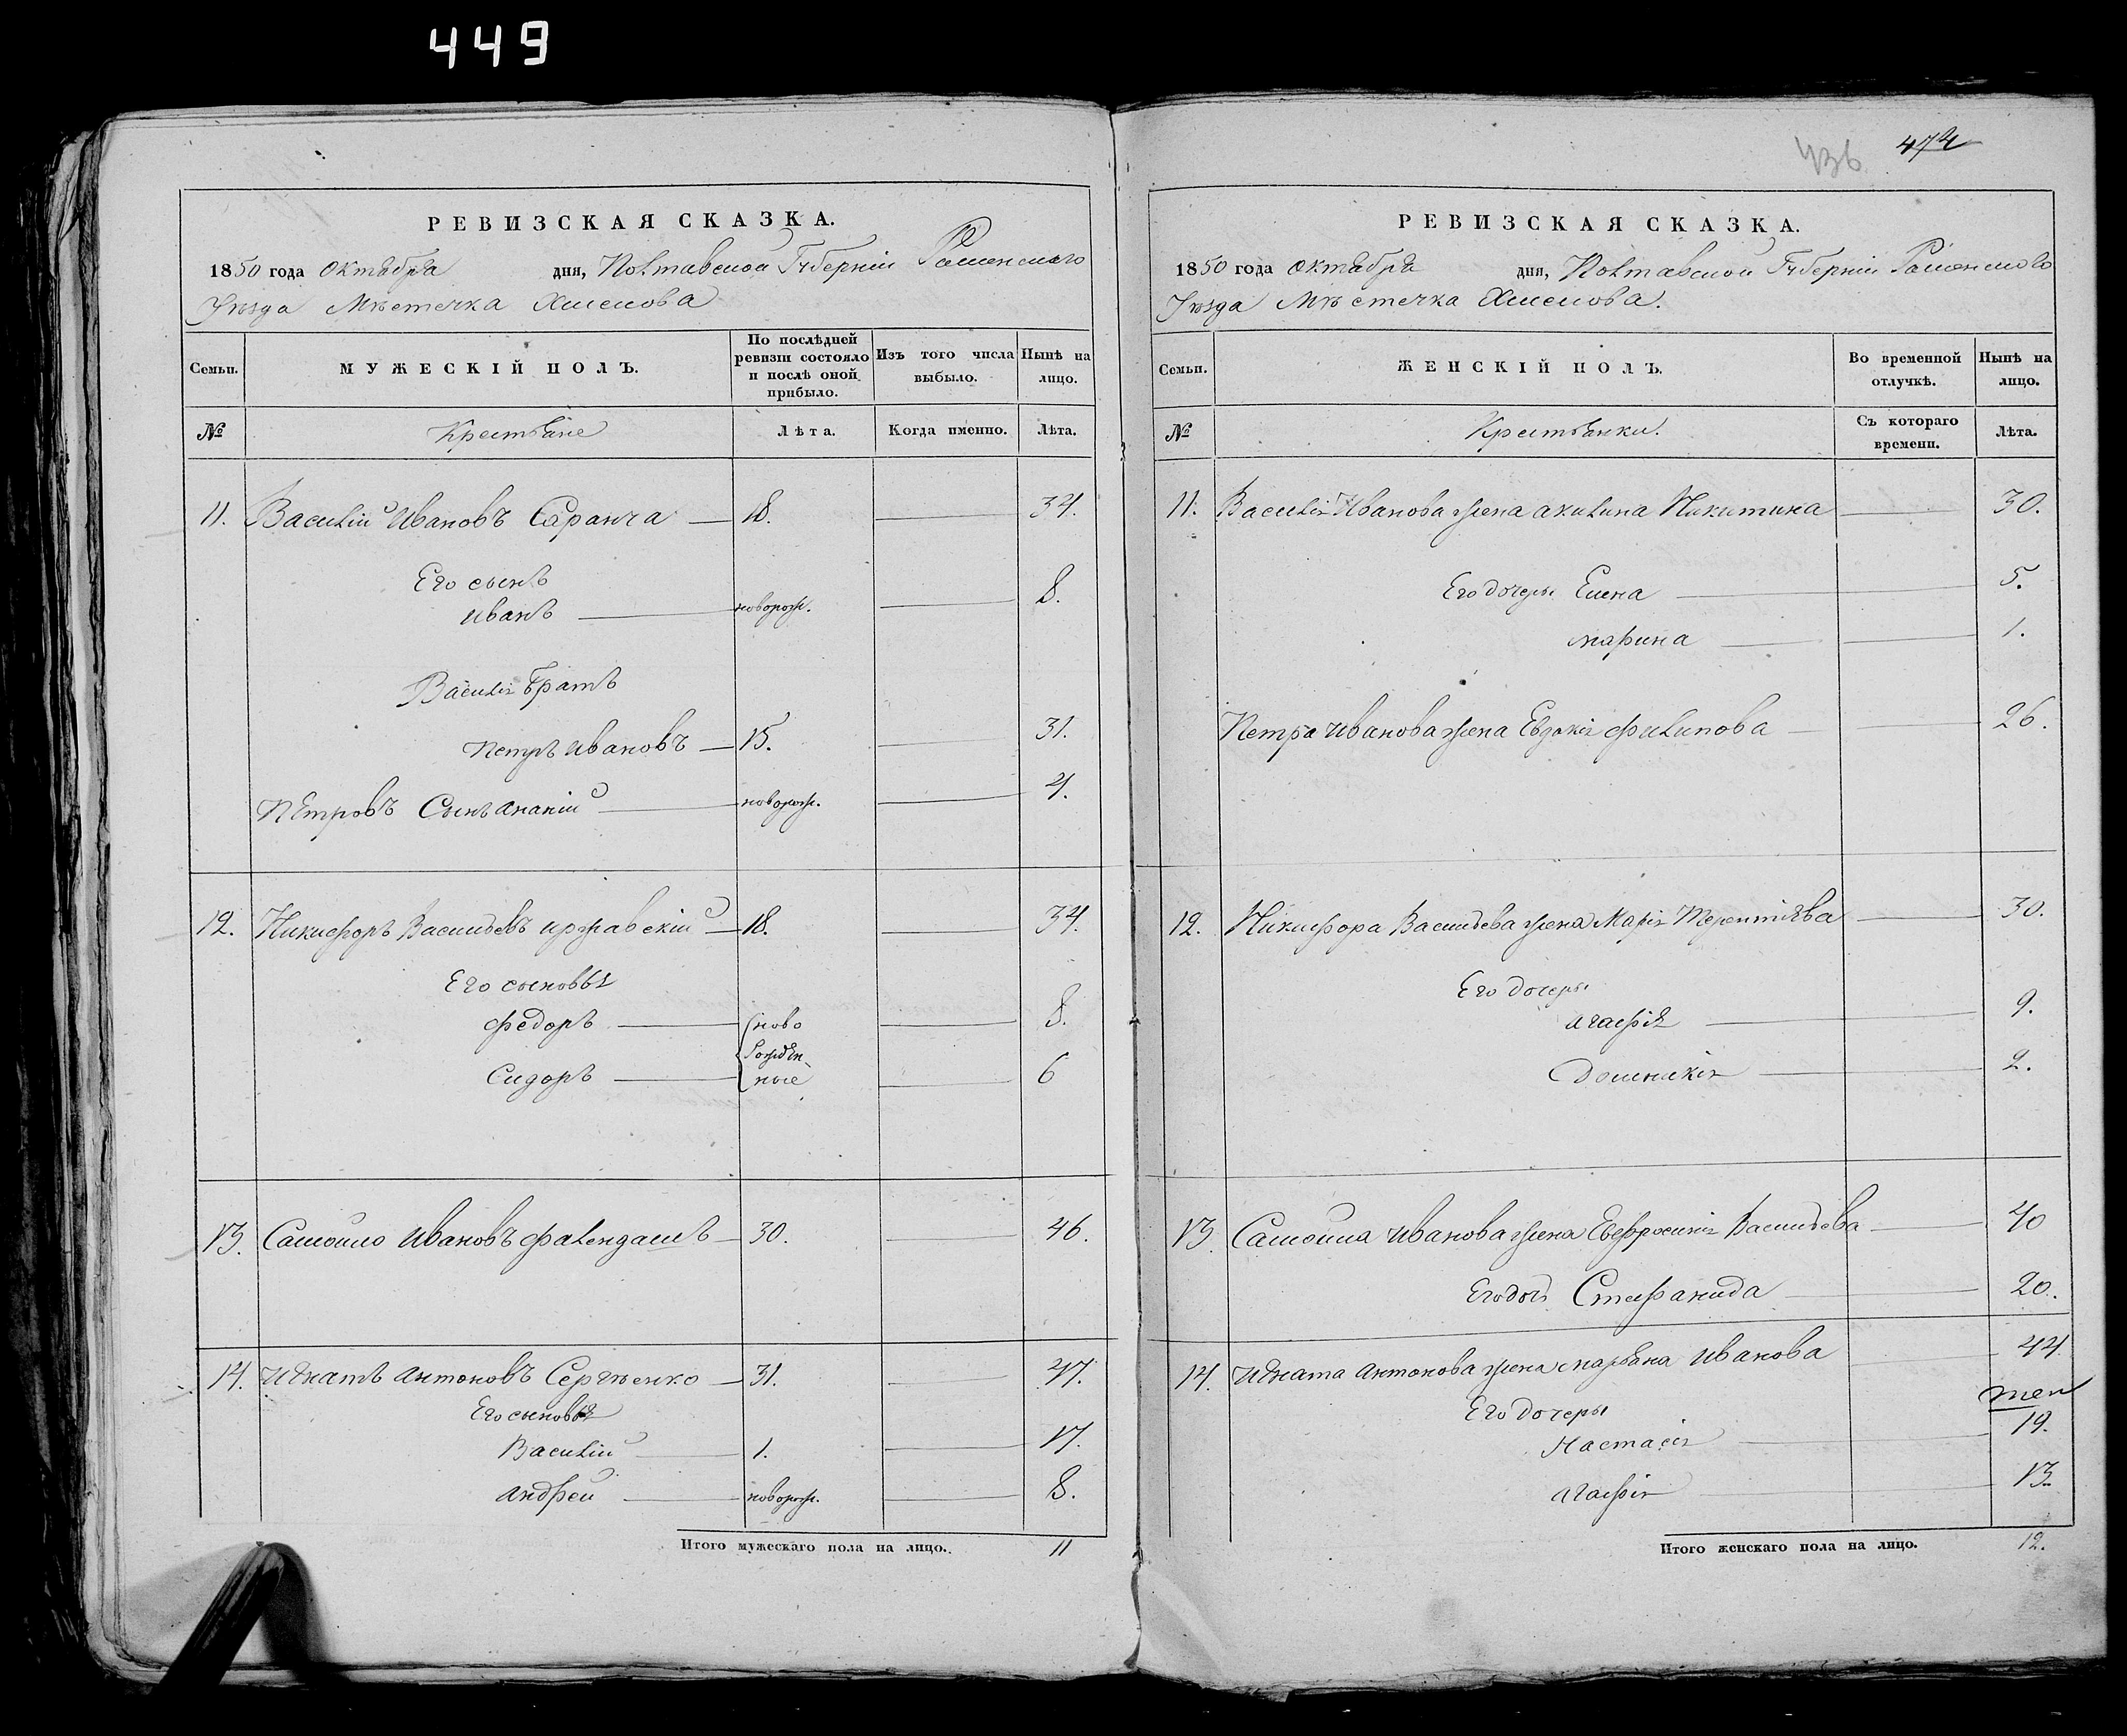 449
РЕВИЗСКАЯ СКАЗКА.
1850 года Октября дня, Полтавской Губерніи Роменскаго
Уѣзда Мѣстечка Хмелова
Семьи. МУЖЕСКІЙ ПОЛЪ. По послѣдней ревизіи состояло и послѣ оной прибыло. Изъ того числа выбыло. Нынѣ на лицо.
№ Крестьяне Лѣта. Когда именно. Лѣта.
11. Василій Ивановъ Саранча 18. 34.
Его сынъ
Иванъ новорож. 8.
Василія братъ
Петръ Ивановъ 15. 31.
Петровъ Сынъ Ананій новорож. 4.
12. Никифоръ Васильевъ Иржавскій 18. 34.
Его сыновья
Федоръ ново 8.
рожден
Сидоръ ные 6
13. Самойло Ивановъ Фалендашъ 30. 46.
14. Игнатъ Антоновъ Сергѣенко 31. 47.
Его сыновья
Василій 1. 17.
Андрей новорож. 8.
Итого мужескаго пола на лицо. 11
436 474
РЕВИЗСКАЯ СКАЗКА.
1850 года Октября дня, Полтавской Губерніи Роменского
Уѣзда Мѣстечка Хмелова.
Семьи. ЖЕНСКІЙ ПОЛЪ. Во временной отлучкѣ. Нынѣ на лицо.
№ Крестьянки. Съ котораго времени. Лѣта.
11. Василія Иванова жена Акилина Никитина 30.
Его дочеры Елена 5.
Марина 1.
Петра Иванова жена Евдокія Филипова 26.
12. Никифора Васильева жена Марія Терентіева 30.
Его дочеры
Агафія 9.
Доминикія 2.
13. Самойла Иванова жена Евфросинія Васильева 40
Его дочь Стефанида 20.
14. Игната Антонова жена Марьяна Иванова 44
Его дочеры
Настасія 19.
Агафія 13.
Итого женскаго пола на лицо. 12.